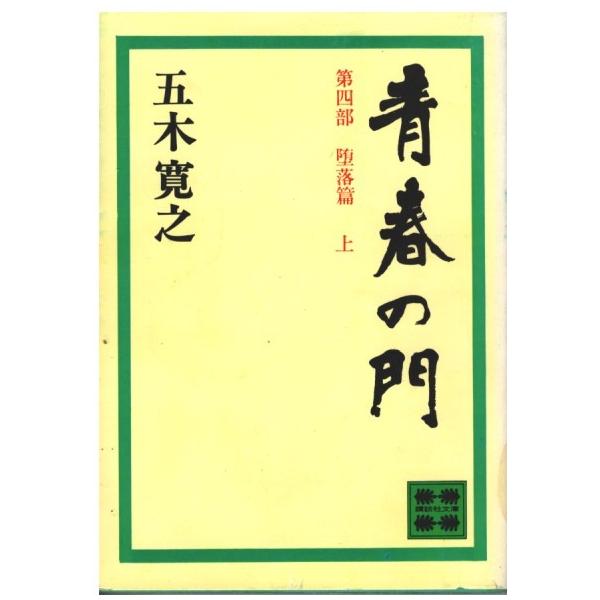 青春の門
第四部 堕落篇 上
五木寛之
講談社文庫